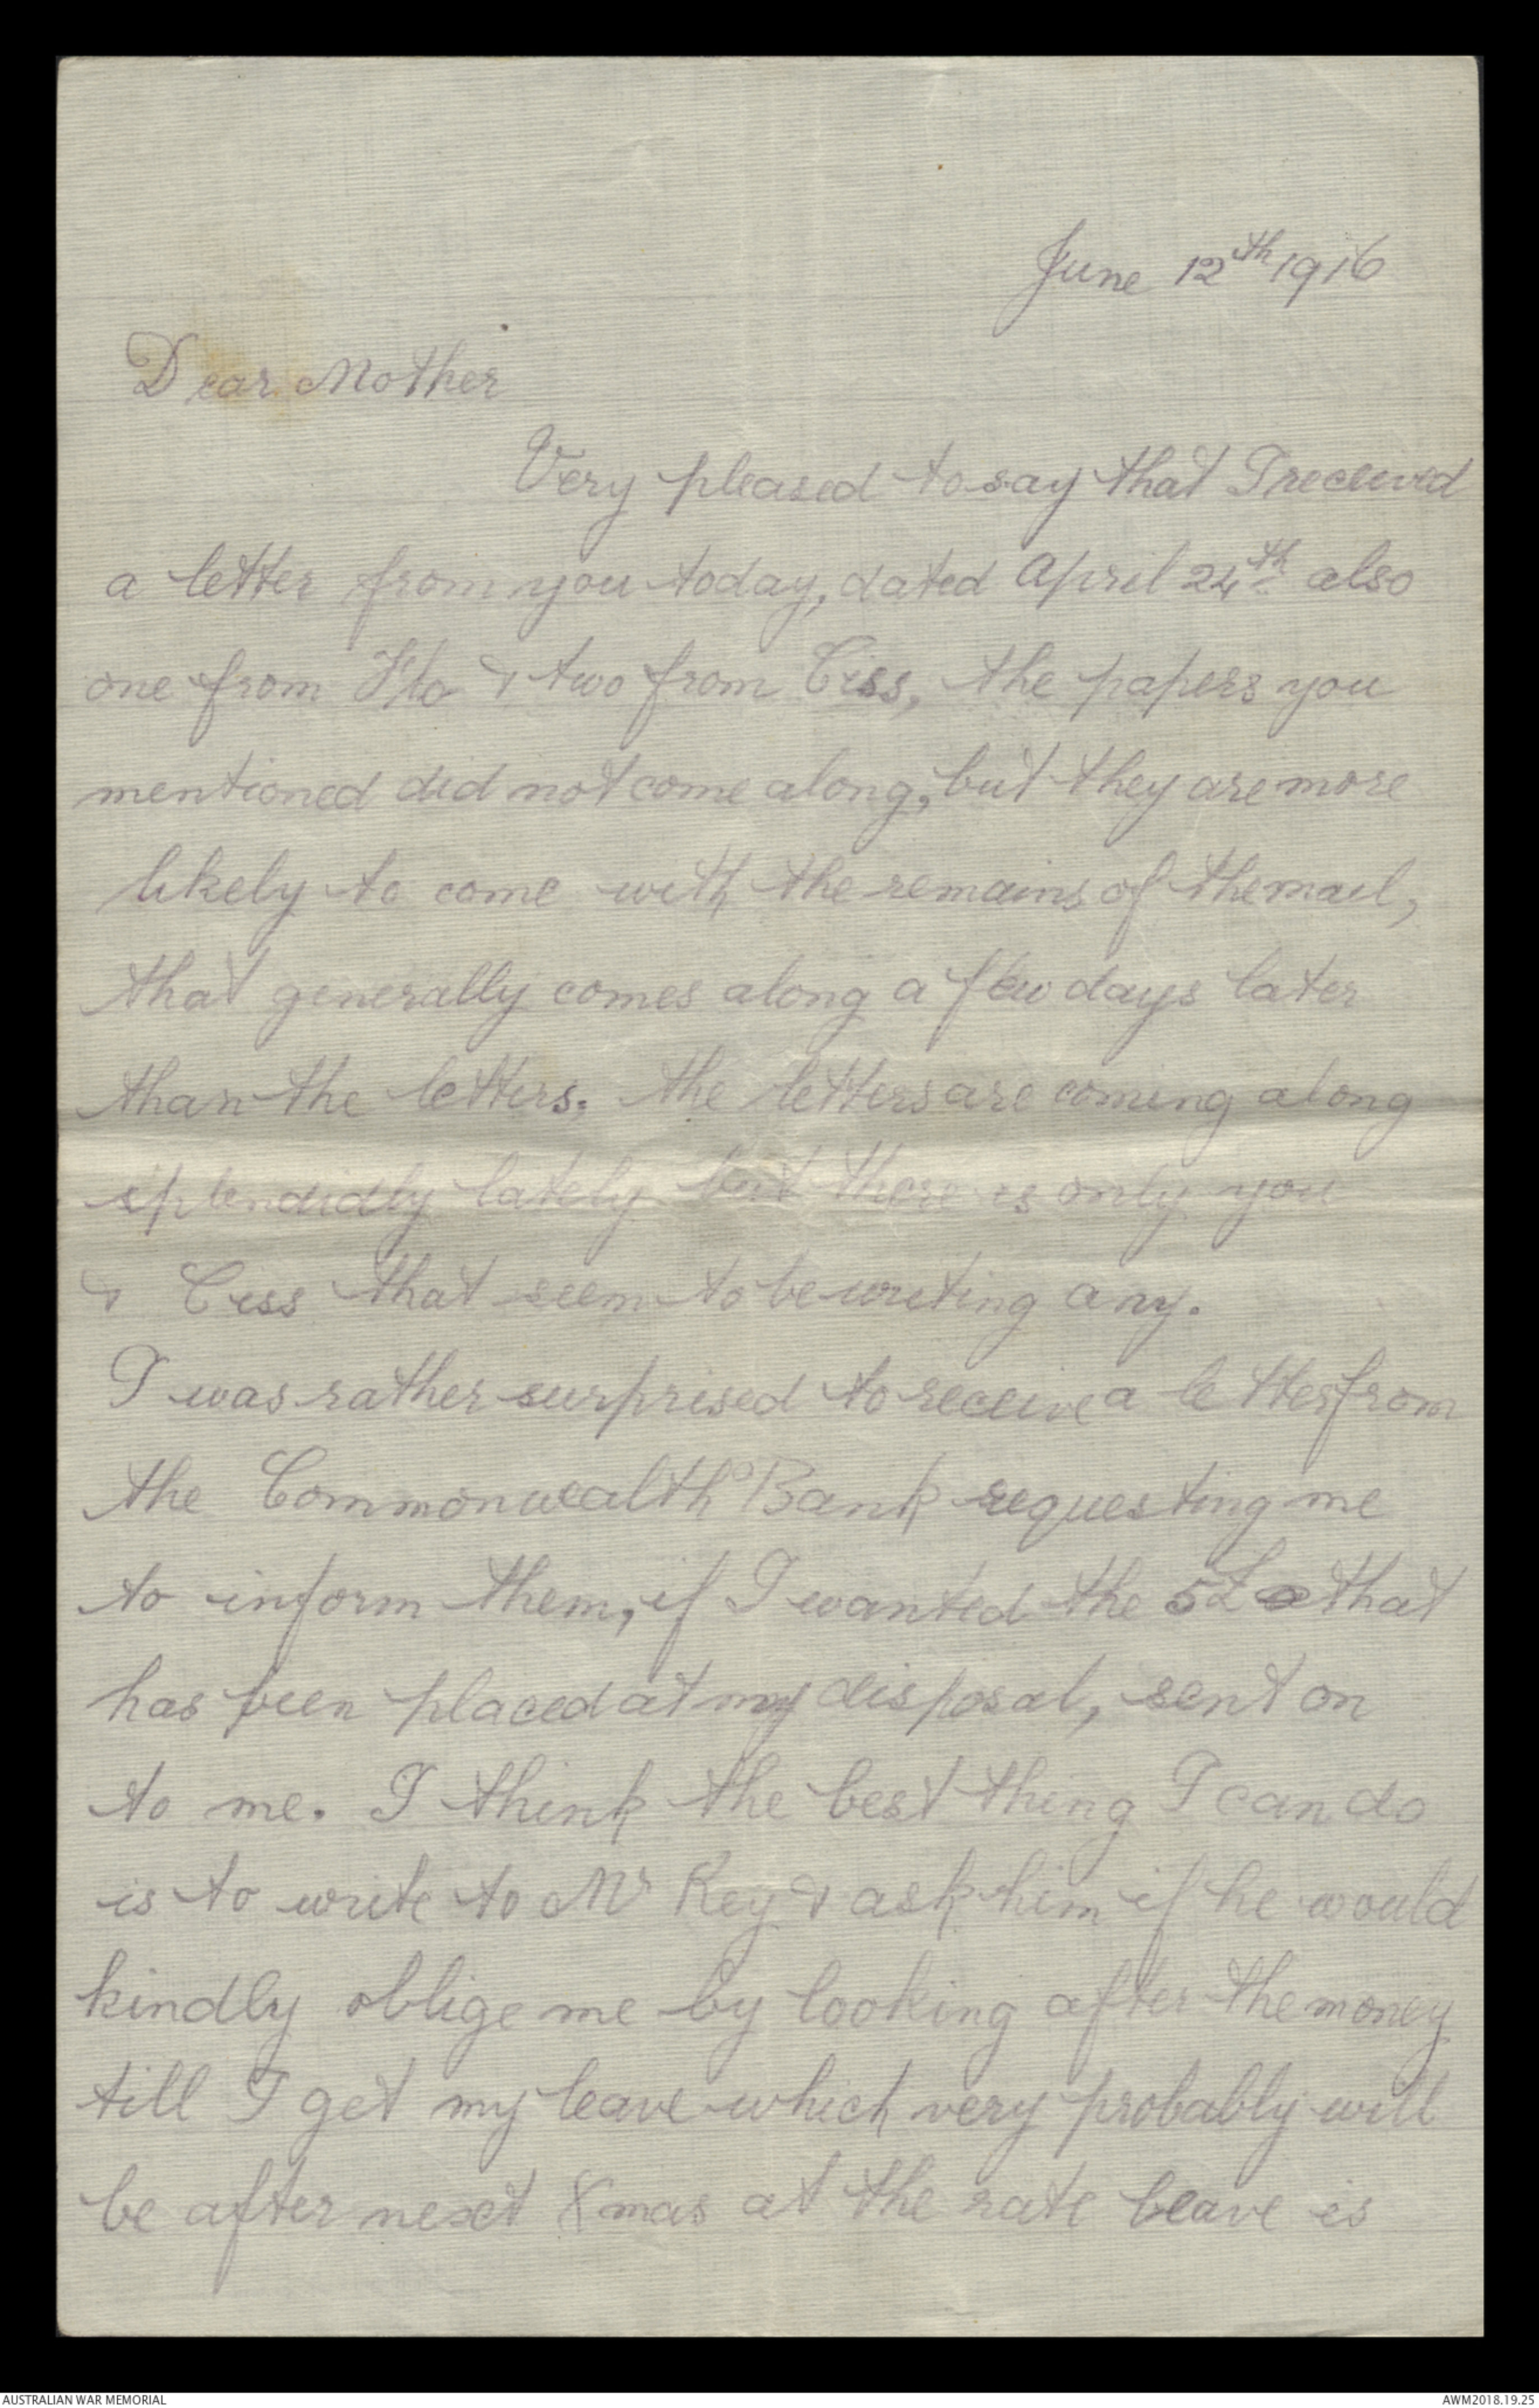 June 12th 1916
Dear Mother
Very pleased to say that I received
a letter from you today, dated April 24th also
one from Flo & two from Ciss, the papers you
mentioned did not come along, but they are more
likely to come with the remains of the mail,
that generally comes along a few days later
than the letters. the letters are coming along
splendidly lately but there is only you
& Ciss that seem to be writing any.
I was rather surprised to receive a letter from
the Commonwealth Bank requesting me
to inform them, if I wanted the 5£ that
has been placed at my disposal, sent on
to me. I think the best thing I can do
is to write to Mr Key & ask him if he would
kindly oblige me by looking after the money
till I get my leave which very probably will
be after next Xmas at the rate leave is
AUSTRALIAN WAR MEMORIAL
AWM2018.19.25